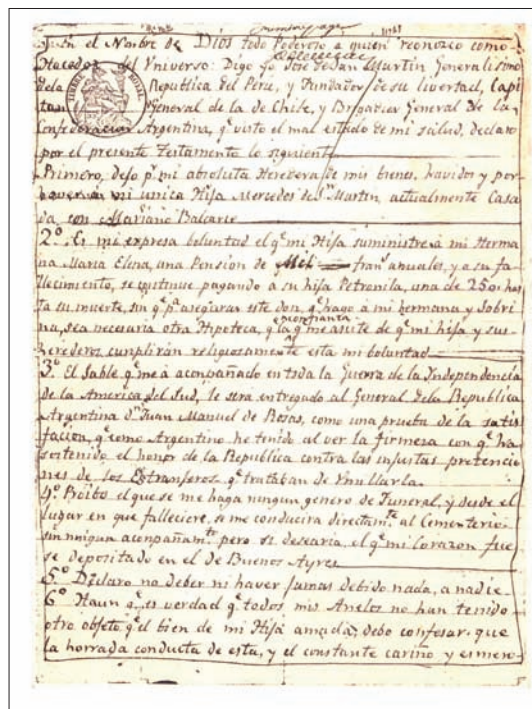 En el Nombre de Dios todo Poderoso a quien reconozco como
Hacedor del Universo: Digo yo José de San Martin Generalisimo
de la Republica del Peru, y Fundador de su libertad, Capi
tan General de la de Chile, y Brigadier General de la
Confederacion Argentina, qe visto el mal estado de mi salud, declaro
por el presente Testamento lo siguiente
Primero, dejo pr mi absoluta Heredera de mis bienes, havidos y por
haver a mi unica Hija Mercedes de Sn Martin actualmente Casa
da con Mariano Balcarce
2º. Es mi expresa boluntad el qe mi Hija suministre a mi Herma
na Maria Elena, una Pension de Mil fransn anuales, y a su fa
llecimiento, se continue pagando a su hija Petronila, una de 250: has
ta su muerte, sin qe pa asegurar este don, qe hago a mi hermana y Sobri
na, sea necesaria otra Hipoteca, qe la confianza qe me asiste de qe mi hija y sus
herederos cumplirán religiosamente esta mi boluntad
3º. El Sable qe me à acompañado en toda la Guerra de la Independencia
de la America del Sud, le sera entregado al General de la Republica
Argentina Dn Juan Manuel de Rosas, como una prueba de la satis
faccion, qe como Argentino he tenido al ver la firmeza con qe ha
sostenido el honor de la Republica contra las injustas pretencio
nes de los Estranjeros qe trataban de Umillarla.
4º. Proibo el que se me haga ningun genero de Funeral, y desde el
lugar en que falleciere, se me conducira directamte al Cementerio
sin ningun acompañamto pero si desearia, el qe mi Corazon fuese
se depositado en el de Buenos Ayres
5º. Declaro no deber ni haver jamas debido nada, a nadie.
6º. Haun qe es verdad qe todos mis Anelos no han tenido
otro objeto, qe el bien de mi Hija amada, debo confesar, que
la honrada conducta de esta, y el constante cariño y esmero